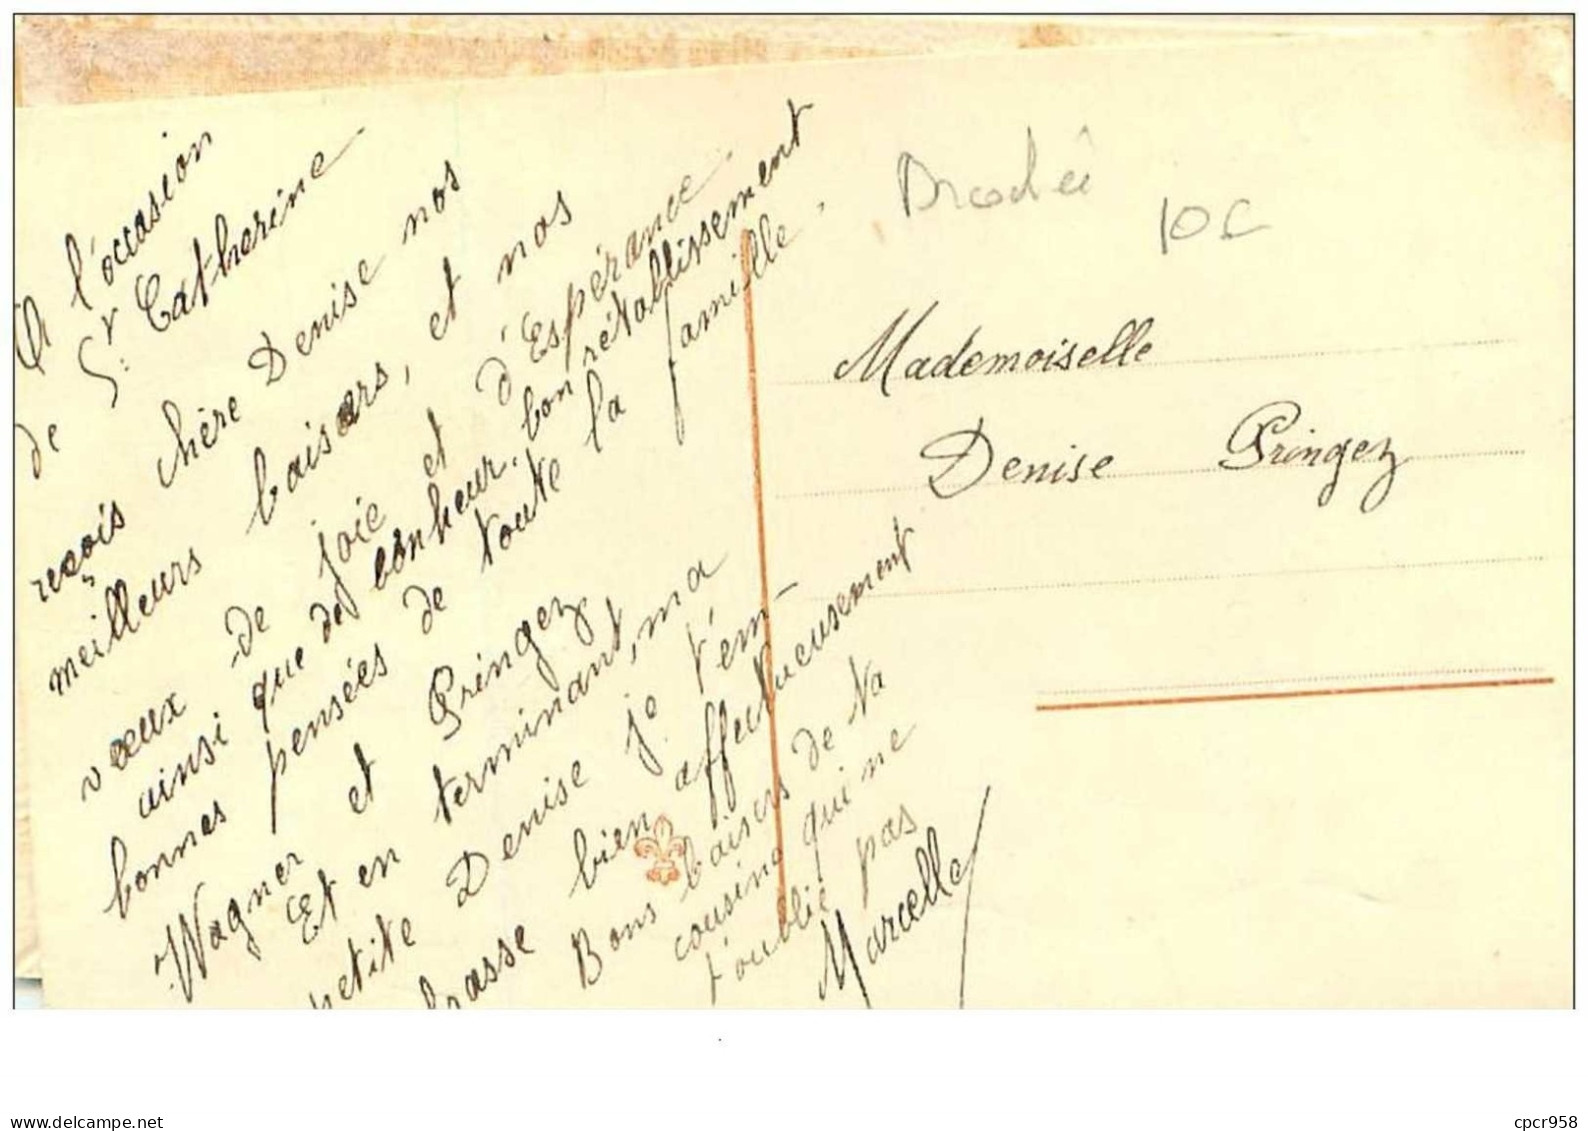 A l'occasion
de St: Catherine
reçois chère Denise nos
meilleurs baisers, et nos
vœux de joie et d'Espérance
ainsi que de bonheur, bon rétablissement
bonnes pensées de toute la famille.
Wagner et Pringez
Et en terminant, ma
petite Denise je t'em-
brasse bien affectueusement
Bons baisers de ta
cousine qui ne
t'oublie pas
Marcelle
Brodée
10€
Mademoiselle
Denise Pringez
www.delcampe.net
cpcr958